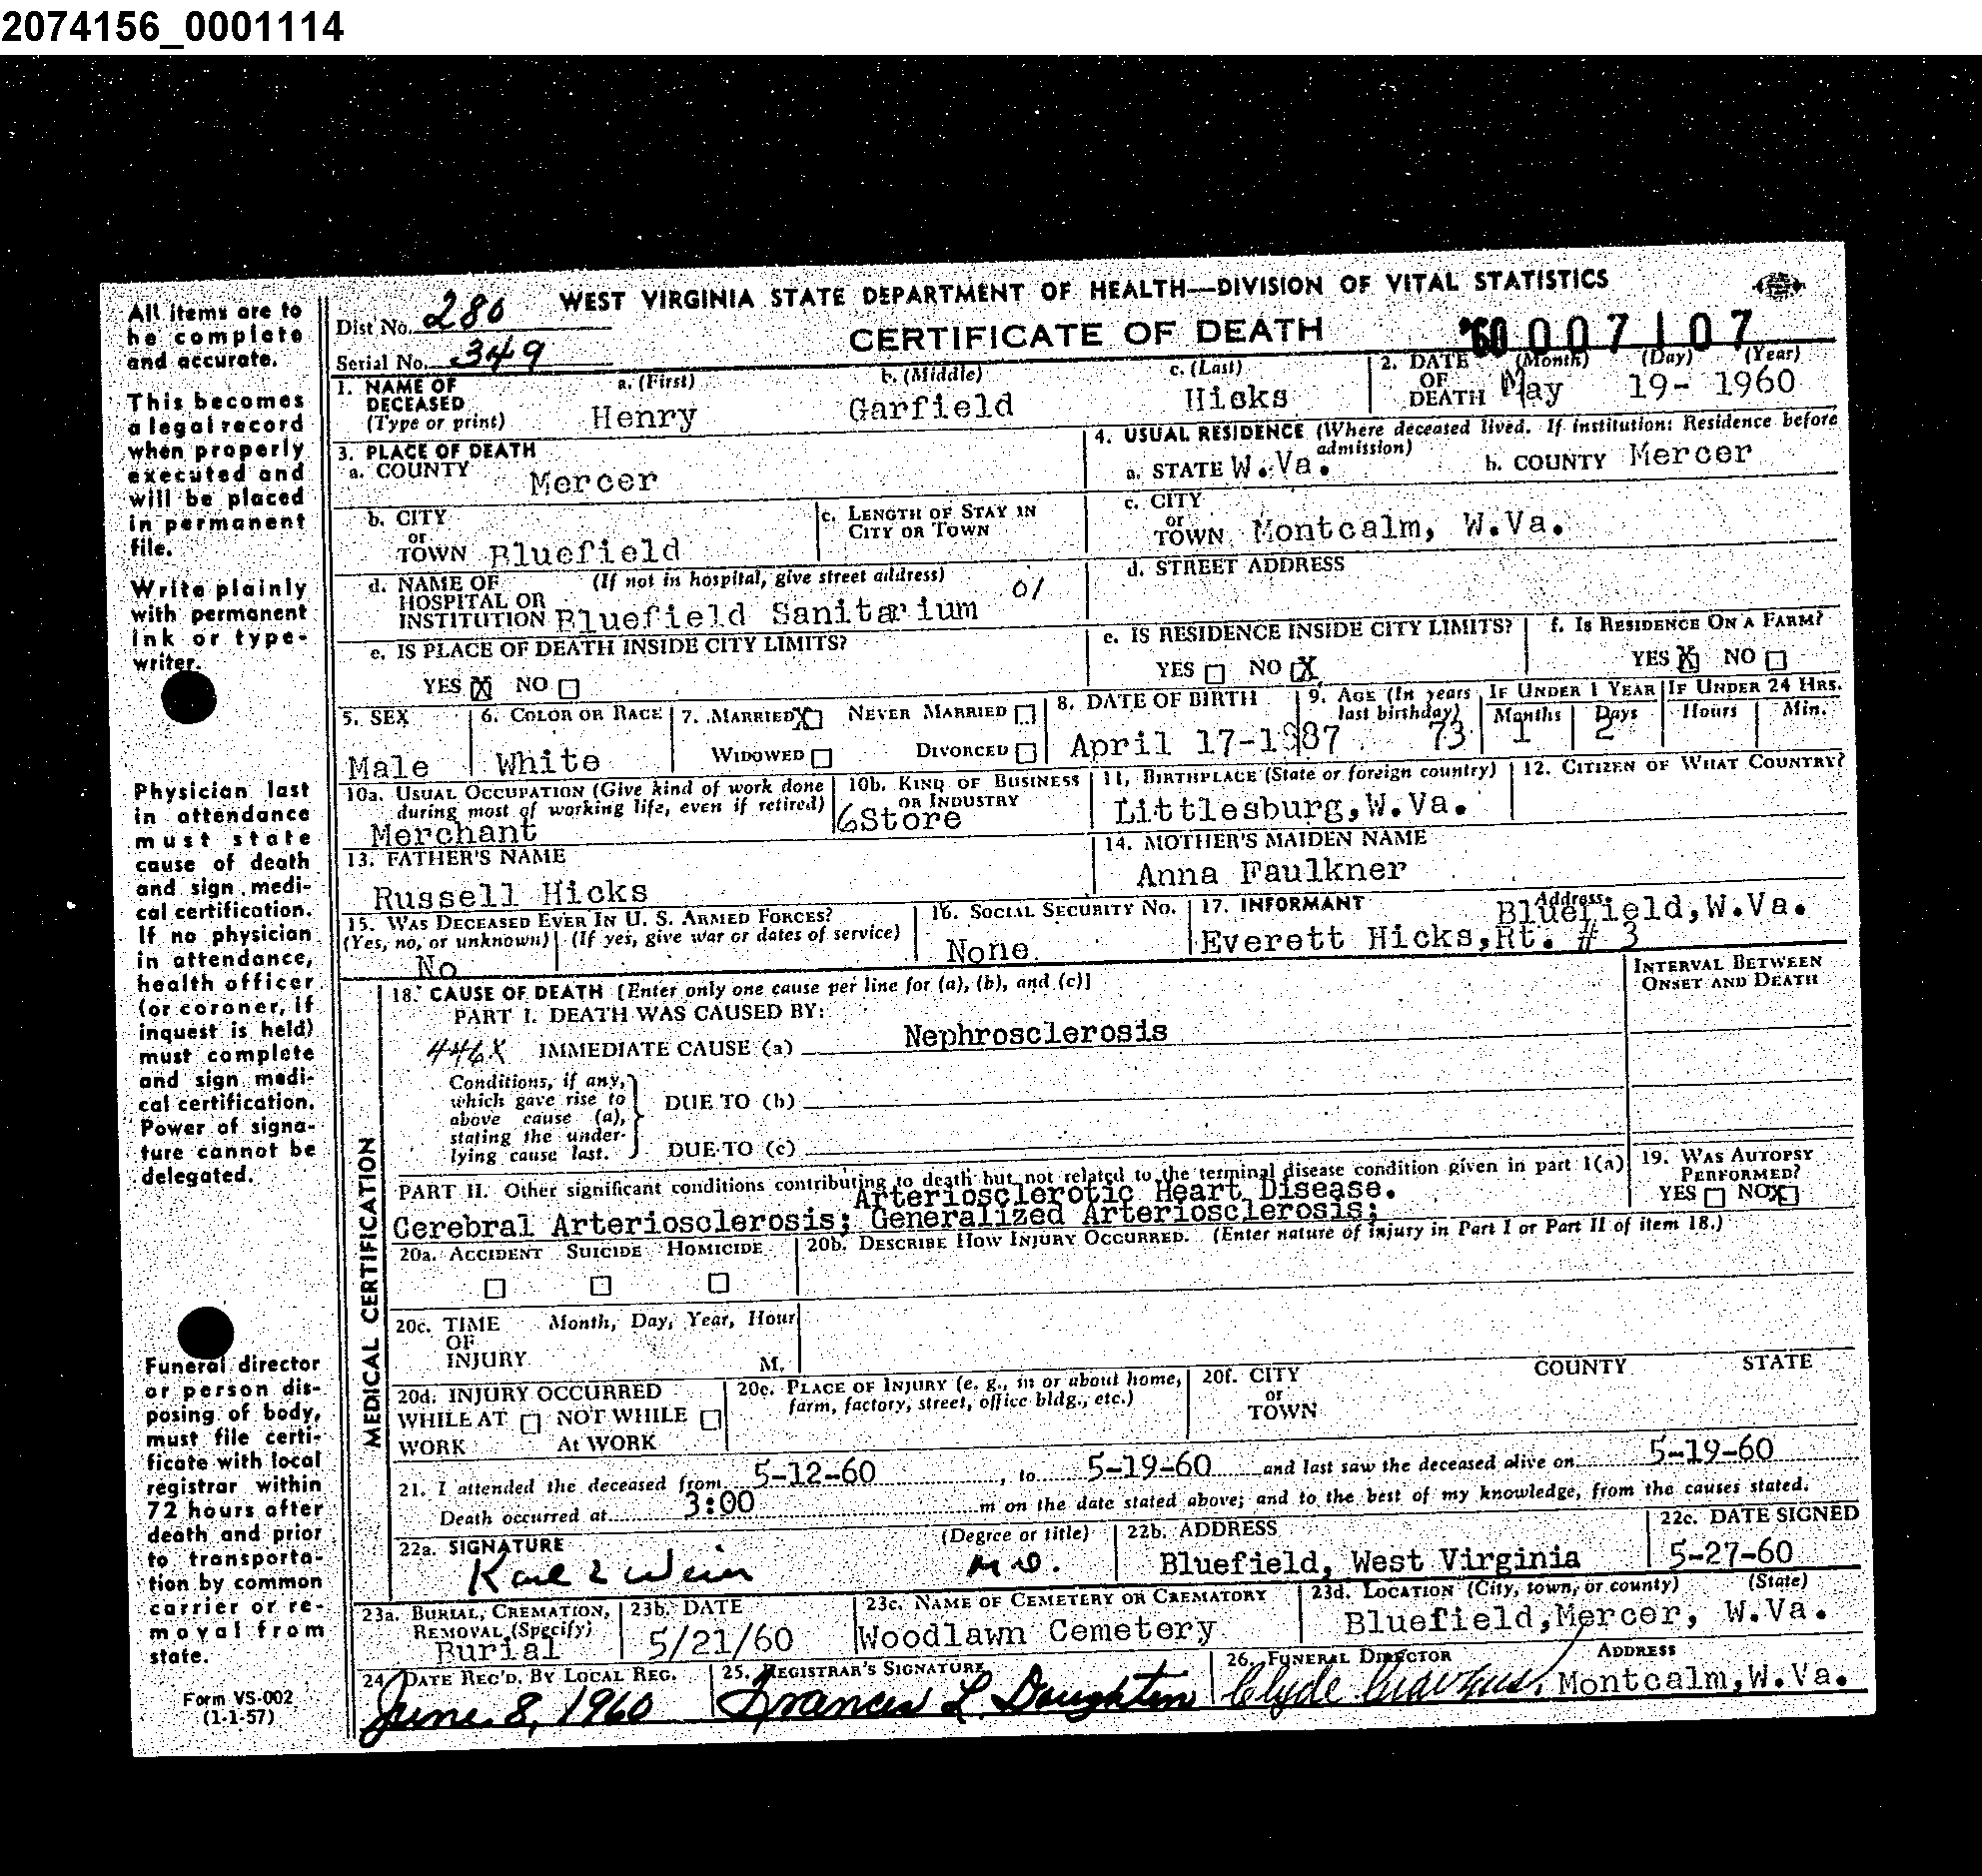 2074156_0001114
All items are to
be complete
and accurate.
This becomes
a legal record
when properly
executed and
will be placed
in permanent
file.
Write plainly
with permanent
ink or type-
writer.
Physician last
in attendance
must state
cause of death
and sign medi-
cal certification.
If no physician
in attendance,
health officer
(or coroner, if
inquest is held)
must complete
and sign medi-
cal certification.
Power of signa-
ture cannot be
delegated.
Funeral director
or person dis-
posing of body,
must file certi-
ficate with local
registrar within
72 hours after
death and prior
to transporta-
tion by common
carrier or re-
moval from
state.
Form VS-002
(1-1-57)
WEST VIRGINIA STATE DEPARTMENT OF HEALTH—DIVISION OF VITAL STATISTICS
Dist No. 280
CERTIFICATE OF DEATH '60 007107
Serial No. 349
1. NAME OF DECEASED (Type or print) a. (First) Henry b. (Middle) Garfield c. (Last) Hicks
2. DATE OF DEATH (Month) May (Day) 19- (Year) 1960
3. PLACE OF DEATH
a. COUNTY Mercer
b. CITY or TOWN Bluefield
c. LENGTH OF STAY IN CITY OR TOWN
d. NAME OF HOSPITAL OR INSTITUTION (If not in hospital, give street address) Bluefield Sanitarium 01
e. IS PLACE OF DEATH INSIDE CITY LIMITS?
YES X NO
4. USUAL RESIDENCE (Where deceased lived. If institution: Residence before admission)
a. STATE W.Va. b. COUNTY Mercer
c. CITY or TOWN Montcalm, W.Va.
d. STREET ADDRESS
e. IS RESIDENCE INSIDE CITY LIMITS?
YES NO X
f. IS RESIDENCE ON A FARM?
YES X NO
5. SEX Male
6. COLOR OR RACE White
7. MARRIED X NEVER MARRIED
WIDOWED DIVORCED
8. DATE OF BIRTH April 17-1887
9. AGE (In years last birthday) 73
IF UNDER 1 YEAR Months 1 Days 2
IF UNDER 24 HRS. Hours Min.
10a. USUAL OCCUPATION (Give kind of work done during most of working life, even if retired) Merchant
10b. KIND OF BUSINESS OR INDUSTRY 6 Store
11. BIRTHPLACE (State or foreign country) Littlesburg, W.Va.
12. CITIZEN OF WHAT COUNTRY?
13. FATHER'S NAME Russell Hicks
14. MOTHER'S MAIDEN NAME Anna Faulkner
15. WAS DECEASED EVER IN U. S. ARMED FORCES?
(Yes, no, or unknown) (If yes, give war or dates of service)
No
16. SOCIAL SECURITY NO. None
17. INFORMANT Address Bluefield, W.Va.
Everett Hicks, Rt. # 3
MEDICAL CERTIFICATION
18. CAUSE OF DEATH [Enter only one cause per line for (a), (b), and (c)]
INTERVAL BETWEEN ONSET AND DEATH
PART I. DEATH WAS CAUSED BY:
446X IMMEDIATE CAUSE (a) Nephrosclerosis
Conditions, if any, which gave rise to above cause (a), stating the underlying cause last.
DUE TO (b)
DUE TO (c)
PART II. Other significant conditions contributing to death but not related to the terminal disease condition given in part 1(a)
Arteriosclerotic Heart Disease.
Cerebral Arteriosclerosis; Generalized Arteriosclerosis;
19. WAS AUTOPSY PERFORMED?
YES NO X
20a. ACCIDENT SUICIDE HOMICIDE
20b. DESCRIBE HOW INJURY OCCURRED. (Enter nature of injury in Part I or Part II of item 18.)
20c. TIME OF INJURY Month, Day, Year, Hour M.
20d. INJURY OCCURRED
WHILE AT WORK NOT WHILE At WORK
20e. PLACE OF INJURY (e. g., in or about home, farm, factory, street, office bldg., etc.)
20f. CITY or TOWN COUNTY STATE
21. I attended the deceased from 5-12-60, to 5-19-60 and last saw the deceased alive on 5-19-60
Death occurred at 3:00 m on the date stated above; and to the best of my knowledge, from the causes stated.
22a. SIGNATURE (Degree or title) M.D.
22b. ADDRESS Bluefield, West Virginia
22c. DATE SIGNED 5-27-60
23a. BURIAL, CREMATION, REMOVAL (Specify) Burial
23b. DATE 5/21/60
23c. NAME OF CEMETERY OR CREMATORY Woodlawn Cemetery
23d. LOCATION (City, town, or county) (State) Bluefield, Mercer, W.Va.
24. DATE REC'D. BY LOCAL REG. June 8, 1960
25. REGISTRAR'S SIGNATURE Frances L. Doughton
26. FUNERAL DIRECTOR Clyde ADDRESS Montcalm, W.Va.